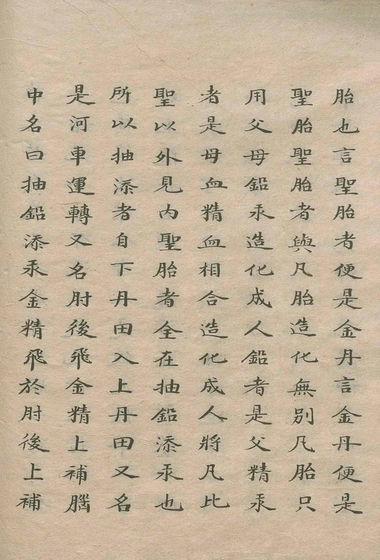 胎也言聖胎者便是金丹言金丹便是
聖胎聖胎者與凡胎造化無別凡胎只
用父母鉛汞造化成人鉛者是父精汞
者是母血精血相合造化成人將凡比
聖以外見内聖胎者全在抽鉛添汞也
所以抽添者自下丹田入上丹田又名
是河車運轉又名肘後飛金精上補腦
中名曰抽鉛添汞金精飛於肘後上補